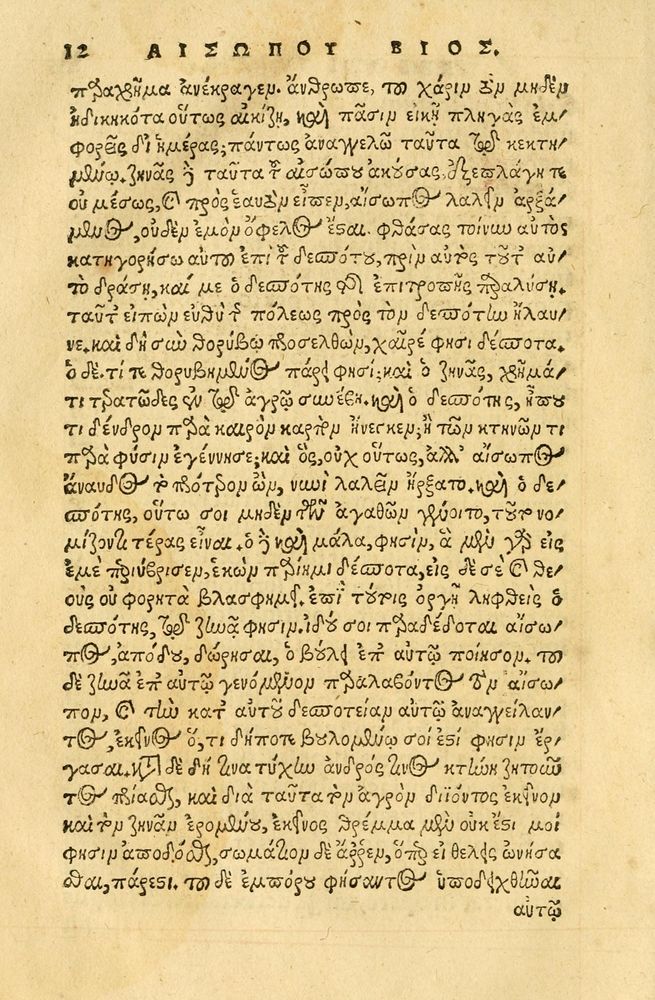 12 ΑΙΣΩΠΟΥ ΒΙΟΣ.
παραχρῆμα ἀνέκραγεν. ἄνθρωπε, τοῦ χάριν τὸν μηδὲν
ἠδικηκότα οὕτως αἰκίζῃ, καὶ πᾶσιν εἰκῆ πληγὰς ἐμ-
φορεῖς δι' ἡμέρας; πάντως ἀναγγελῶ ταῦτα τῷ κεκτη-
μένῳ. ζηνᾶς δὲ ταῦτα τοῦ αἰσώπου ἀκούσας, ἐξεπλάγη τε
οὐ μέσως, καὶ πρὸς ἑαυτὸν εἶπεν, αἴσωπος λαλεῖν ἀρξά-
μενος, οὐδὲν ἐμὸν ὄφελος ἔσται. φθάσας τοίνυν αὐτὸς
κατηγορήσω αὐτοῦ ἐπὶ τοῦ δεσπότου, πρὶν αὐτὸς τοῦτ' αὐ-
τὸ δράσῃ, καί με ὁ δεσπότης τῆς ἐπιτροπῆς παραλύσῃ.
ταῦτ' εἰπὼν εὐθὺ τῆς πόλεως πρὸς τὸν δεσπότην ἤλαυ-
νε. καὶ δὴ σὺν θορύβῳ προσελθὼν, χαῖρέ φησι δέσποτα.
ὁ δὲ. τί τεθορυβημένος πάρει φησί; καὶ ὁ ζηνᾶς, χρῆμά
τι τερατῶδες ἐν τῷ ἀγρῷ συνέβη. καὶ ὁ δεσπότης, ἤπου
τι δένδρον παρὰ καιρὸν καρπὸν ἤνεγκεν; ἢ τῶν κτηνῶν τι
παρὰ φύσιν ἐγέννησε; καὶ ὃς, οὐχ οὕτως, ἀλλ' αἴσωπος
ἄναυδος τὸ πρότερον ὢν, νυνὶ λαλεῖν ἤρξατο. καὶ ὁ δε-
σπότης, οὕτω σοι μηδὲν τῶν ἀγαθῶν γένοιτο, τοῦτο νο-
μίζοντι τέρας εἶναι. ὁ δὲ καὶ μάλα, φησὶν, ἃ μὲν γὰρ εἰς
ἐμὲ περιύβρισεν, ἑκὼν παρίημι δέσποτα, εἰς δὲ σὲ καὶ θε-
οὺς οὐ φορητὰ βλασφημεῖ. ἐπὶ τούτοις ὀργῇ ληφθεὶς ὁ
δεσπότης, τῷ ζηνᾷ φησιν. ἰδού σοι παραδέδοται αἴσω-
πος, ἀπόδου, δώρησαι, ὃ βούλει ἐπ' αὐτῷ ποίησον. τοῦ
δὲ ζηνᾶ ἐπ' αὐτῷ γενόμενον παραλαβόντος τὸν αἴσω-
πον, καὶ τὴν κατ' αὐτοῦ δεσποτείαν αὐτῷ ἀναγγείλαν-
τος, ἐκεῖνος ὅ, τι δήποτε βουλομένῳ σοί ἐστί φησιν ἔρ-
γασαι. κατὰ δὲ δή τινα τύχην ἀνδρός τινος κτήνη ζητοῦν-
τος πρίασθαι, καὶ διὰ ταῦτα τὸν ἀγρὸν διϊόντος ἐκεῖνον
καὶ τὸν ζηνᾶν ἐρομένου, ἐκεῖνος θρέμμα μὲν οὐκ ἔστι μοι
φησιν ἀποδόσθαι, σωμάτιον δὲ ἄρρεν, ὅπερ εἰ θέλεις ὠνήσα
σθαι, πάρεστι. τοῦ δὲ ἐμπόρου φήσαντος ὑποδειχθῆναι
αὐτῷ